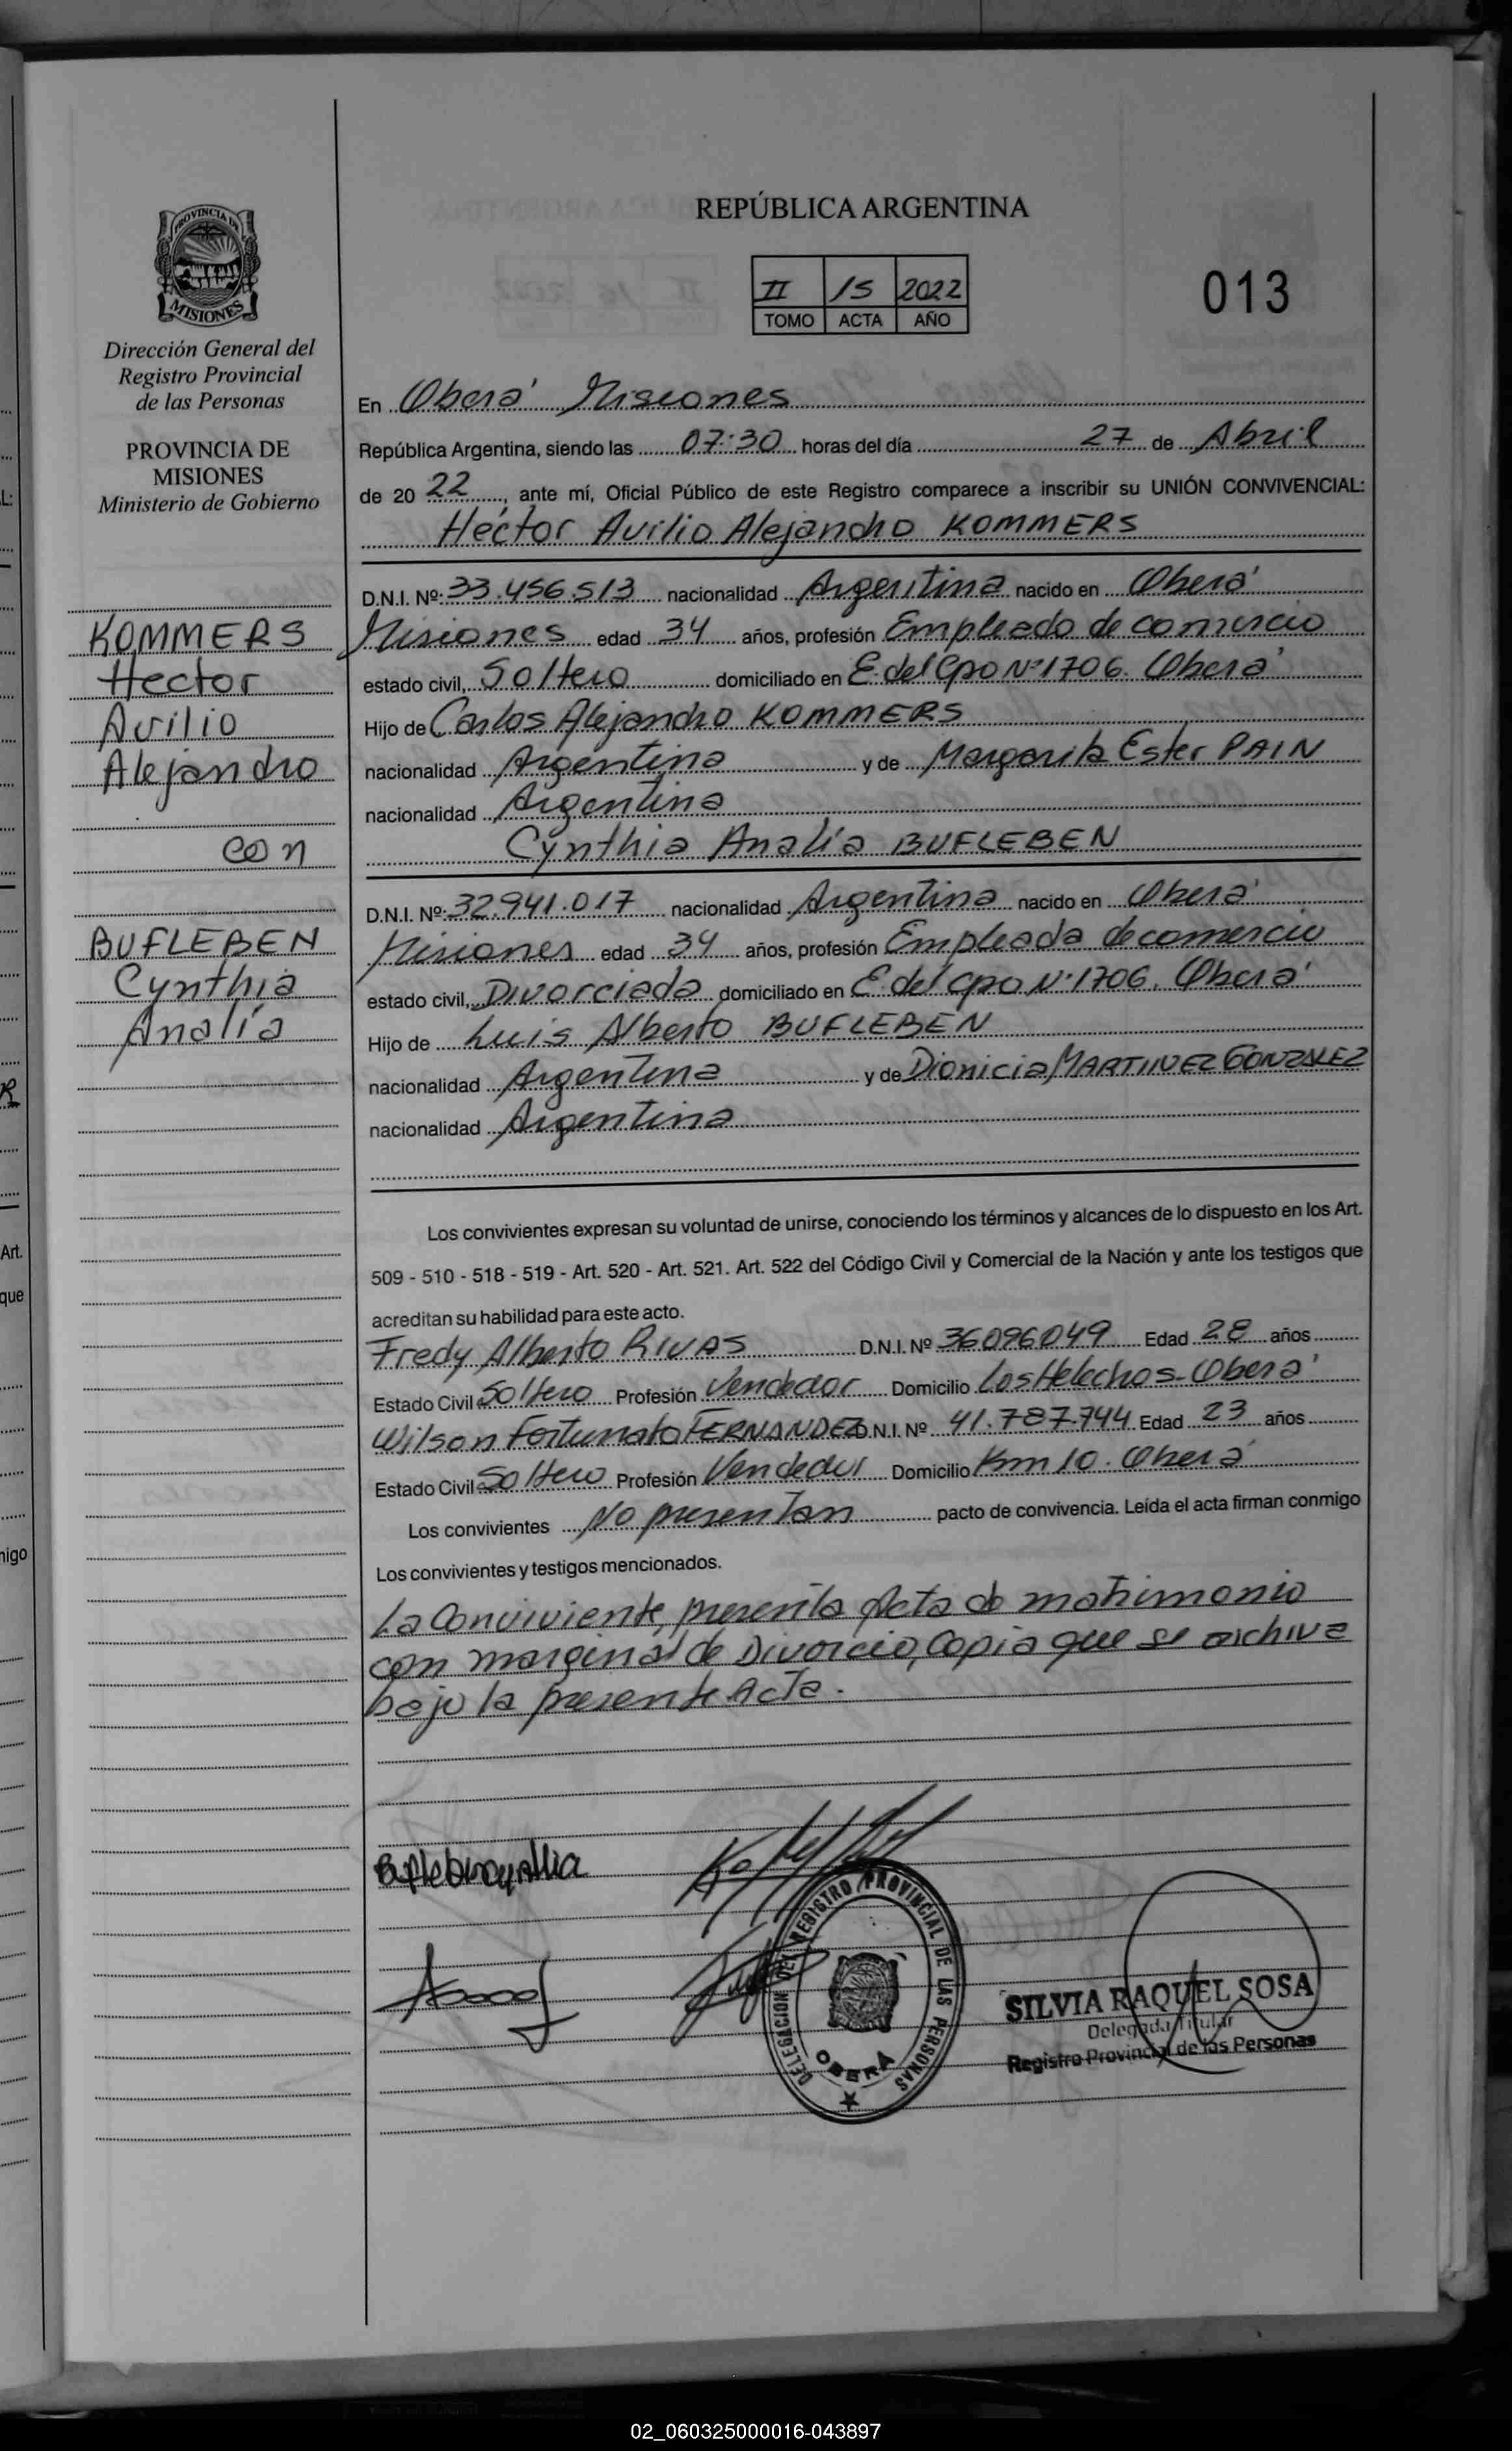 REPÚBLICA ARGENTINA
II 15 2022
TOMO ACTA AÑO
013
PROVINCIA DE
MISIONES
Dirección General del
Registro Provincial
de las Personas
PROVINCIA DE
MISIONES
Ministerio de Gobierno
KOMMERS
Hector
Avilio
Alejandro
con
BUFLEBEN
Cynthia
Analía
En Oberá Misiones
República Argentina, siendo las 07:30 horas del día 27 de Abril
de 20 22, ante mí, Oficial Público de este Registro comparece a inscribir su UNIÓN CONVIVENCIAL:
Héctor Avilio Alejandro KOMMERS
D.N.I. Nº: 33.456.513 nacionalidad Argentina nacido en Oberá
Misiones edad 34 años, profesión Empleado de comercio
estado civil, Soltero domiciliado en E. del Cpo Nº 1706. Oberá
Hijo de Carlos Alejandro KOMMERS
nacionalidad Argentina y de Margarita Ester PAIN
nacionalidad Argentina
Cynthia Analía BUFLEBEN
D.N.I. Nº: 32.941.017 nacionalidad Argentina nacido en Oberá
Misiones edad 34 años, profesión Empleada de comercio
estado civil, Divorciada domiciliado en E. del Cpo Nº 1706. Oberá
Hijo de Luis Alberto BUFLEBEN
nacionalidad Argentina y de Dionicia MARTINEZ GONZALEZ
nacionalidad Argentina
Los convivientes expresan su voluntad de unirse, conociendo los términos y alcances de lo dispuesto en los Art.
509 - 510 - 518 - 519 - Art. 520 - Art. 521. Art. 522 del Código Civil y Comercial de la Nación y ante los testigos que
acreditan su habilidad para este acto.
Fredy Alberto RIVAS D.N.I. Nº 36096049 Edad 28 años
Estado Civil Soltero Profesión Vendedor Domicilio Los Helechos - Oberá
Wilson Fortunato FERNANDEZ D.N.I. Nº 41.787.744 Edad 23 años
Estado Civil Soltero Profesión Vendedor Domicilio Km 10. Oberá
Los convivientes No presentan pacto de convivencia. Leída el acta firman conmigo
Los convivientes y testigos mencionados.
La Conviviente, presenta Acta de matrimonio
con marginal de Divorcio, Copia que se archiva
bajo la presente Acta.
DELEGACION DEL REGISTRO PROVINCIAL DE LAS PERSONAS
OBERA
SILVIA RAQUEL SOSA
Delegada Titular
Registro Provincial de las Personas
L:
R
Art.
que
nigo
02_060325000016-043897